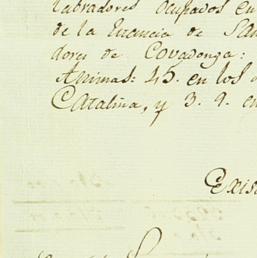 labradores ocupados en
de la Estancia de San
dores de Covadonga:
Animas: 45. en los d
Cataliña, y 3. q. en
Exis